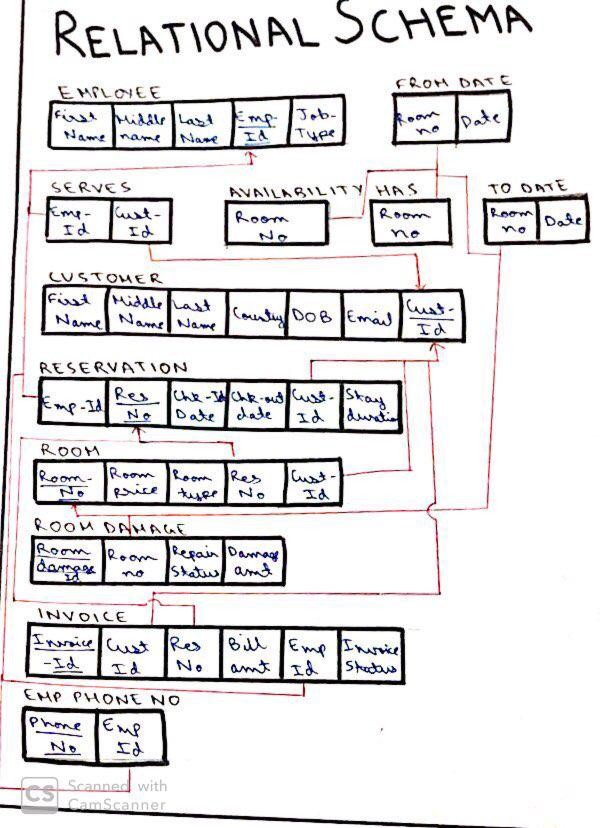 RELATIONAL SCHEMA
EMPLOYEE
First Name Middle name Last Name Emp-Id Job-Type
FROM DATE
Room no Date
SERVES
Emp-Id Cust-Id
AVAILABILITY
Room No
HAS
Room no
TO DATE
Room no Date
CUSTOMER
First Name Middle Name Last Name Country DOB Email Cust-Id
RESERVATION
Emp-Id Res No Chk-Id Date Chk-out date Cust-Id Stay duration
ROOM
Room-No Room price Room type Res No Cust-Id
ROOM DAMAGE
Room damage Id Room no Repair Status Damage amt
INVOICE
Invoice-Id Cust Id Res No Bill amt Emp Id Invoice Status
EMP PHONE NO
Phone No Emp Id
CS Scanned with
CamScanner